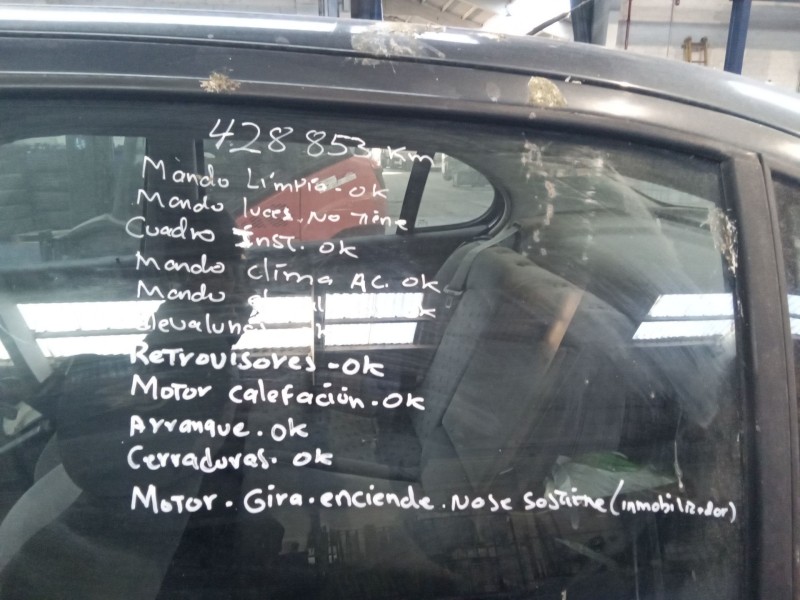 428 853 Km
Mando Limpia. OK
Mando luces. No Tiene
Cuadro Inst. OK
Mando clima AC. OK
Mando
elevalunas
Retrovisores - OK
Motor calefación. OK
Arranque. OK
Cerraduras. OK
Motor. Gira. enciende. No se sostiene (inmobilizador)